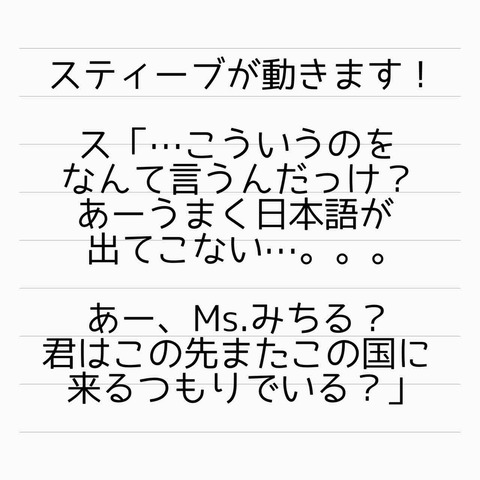 スティーブが動きます！
ス「…こういうのを
なんて言うんだっけ？
あーうまく日本語が
出てこない…。。。
あー、Ms.みちる？
君はこの先またこの国に
来るつもりでいる？」